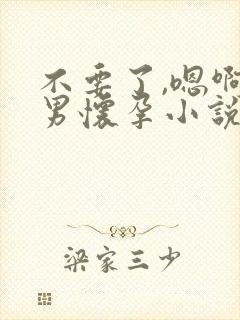 不要了,嗯啊
男懷孕小說
梁家三少